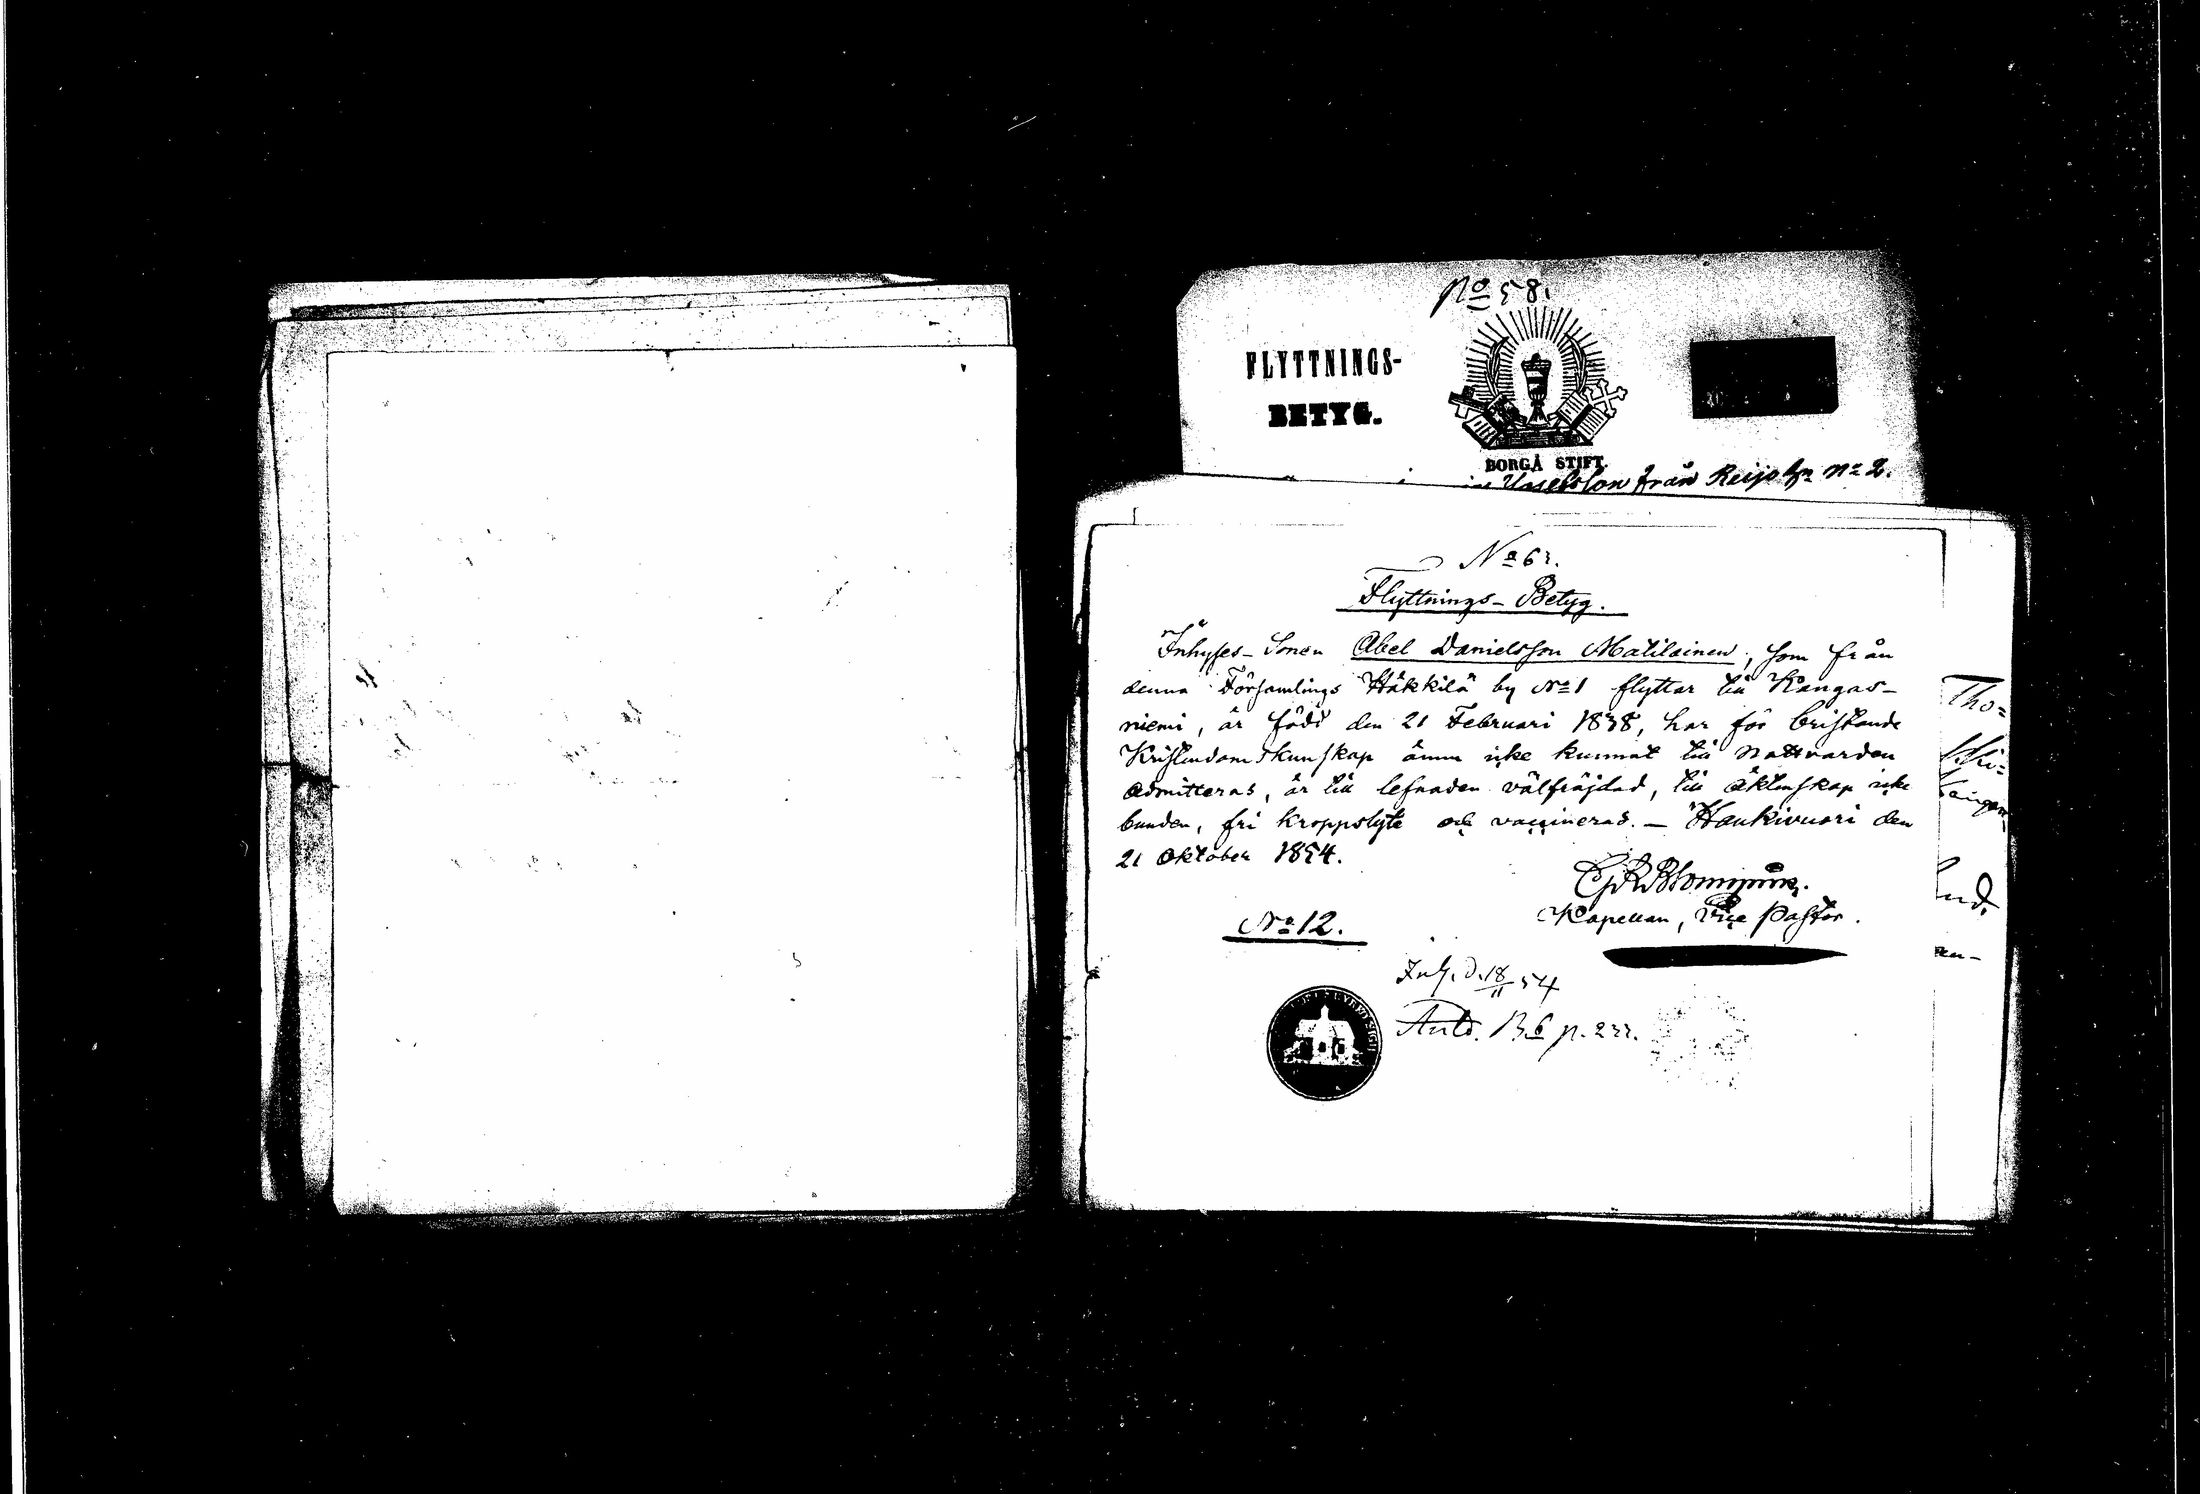 No 58.
FLYTTNINGS-
BETYG.
BORGÅ STIFT.
från Reijo No 2.
No 62.
Flyttnings-Betyg.
Inhyses-Sonen Abel Danielsson Matilainen, som från
denna Församlings Häkkilä by No 1 flyttar till Kangas-
niemi, är född den 21 Februari 1838, har för bristande
Kristendomskunskap ännu icke kunnat till Nattvarden
admitteras, är till lefnaden välfräjdad, till äktenskap icke
bunden, fri kroppslyte och vaccinerad. — Haukivuori den
21 Oktober 1854.
Blomqvist.
Kapellan, Vice Pastor.
No 12.
Inf. d. 18/11 54
B. 6 p. 222.
Tho=